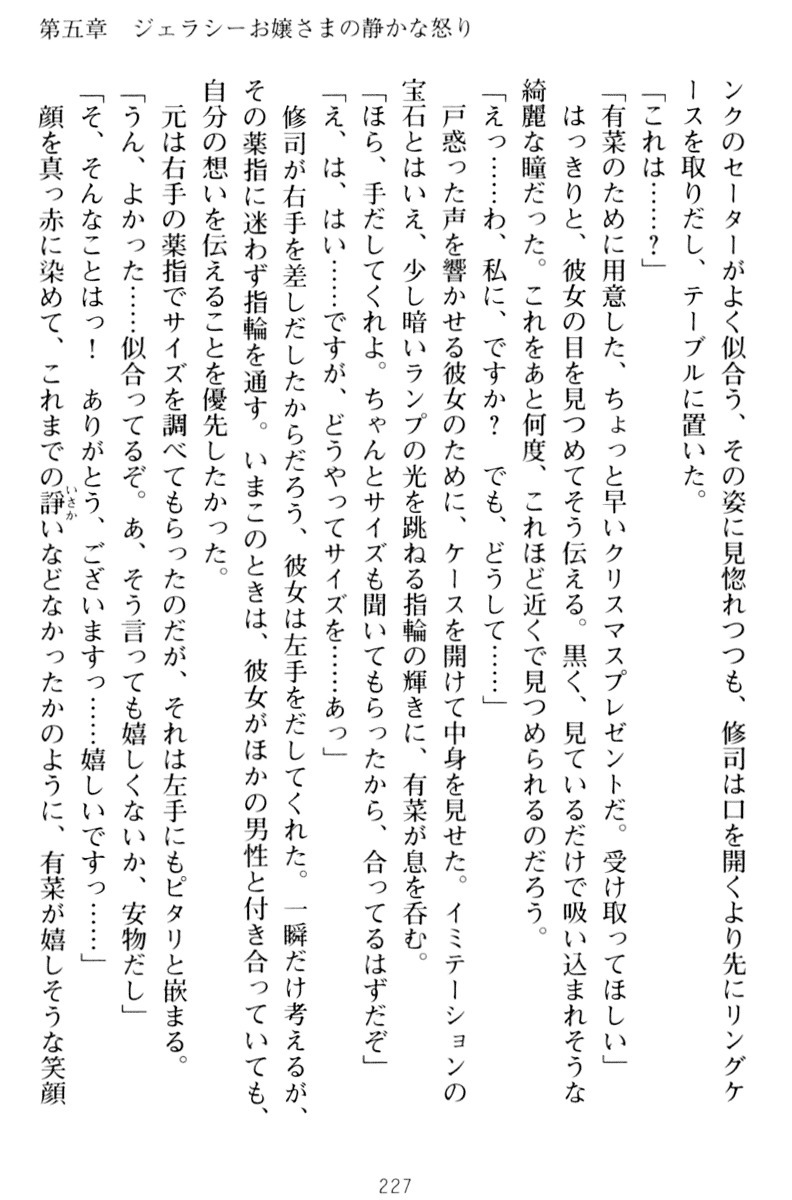 第五章　ジェラシーお嬢さまの静かな怒り
ンクのセーターがよく似合う、その姿に見惚れつつも、修司は口を開くより先にリングケ
ースを取りだし、テーブルに置いた。
「これは……？」
「有菜のために用意した、ちょっと早いクリスマスプレゼントだ。受け取ってほしい」
はっきりと、彼女の目を見つめてそう伝える。黒く、見ているだけで吸い込まれそうな
綺麗な瞳だった。これをあと何度、これほど近くで見つめられるのだろう。
「えっ……わ、私に、ですか？　でも、どうして……」
戸惑った声を響かせる彼女のために、ケースを開けて中身を見せた。イミテーションの
宝石とはいえ、少し暗いランプの光を跳ねる指輪の輝きに、有菜が息を呑む。
「ほら、手だしてくれよ。ちゃんとサイズも聞いてもらったから、合ってるはずだぞ」
「え、は、はい……ですが、どうやってサイズを……あっ」
修司が右手を差しだしたからだろう、彼女は左手をだしてくれた。一瞬だけ考えるが、
その薬指に迷わず指輪を通す。いまこのときは、彼女がほかの男性と付き合っていても、
自分の想いを伝えることを優先したかった。
元は右手の薬指でサイズを調べてもらったのだが、それは左手にもピタリと嵌まる。
「うん、よかった……似合ってるぞ。あ、そう言っても嬉しくないか、安物だし」
「そ、そんなことはっ！　ありがとう、ございますっ……嬉しいですっ……」
顔を真っ赤に染めて、これまでの諍いさかいなどなかったかのように、有菜が嬉しそうな笑顔
227